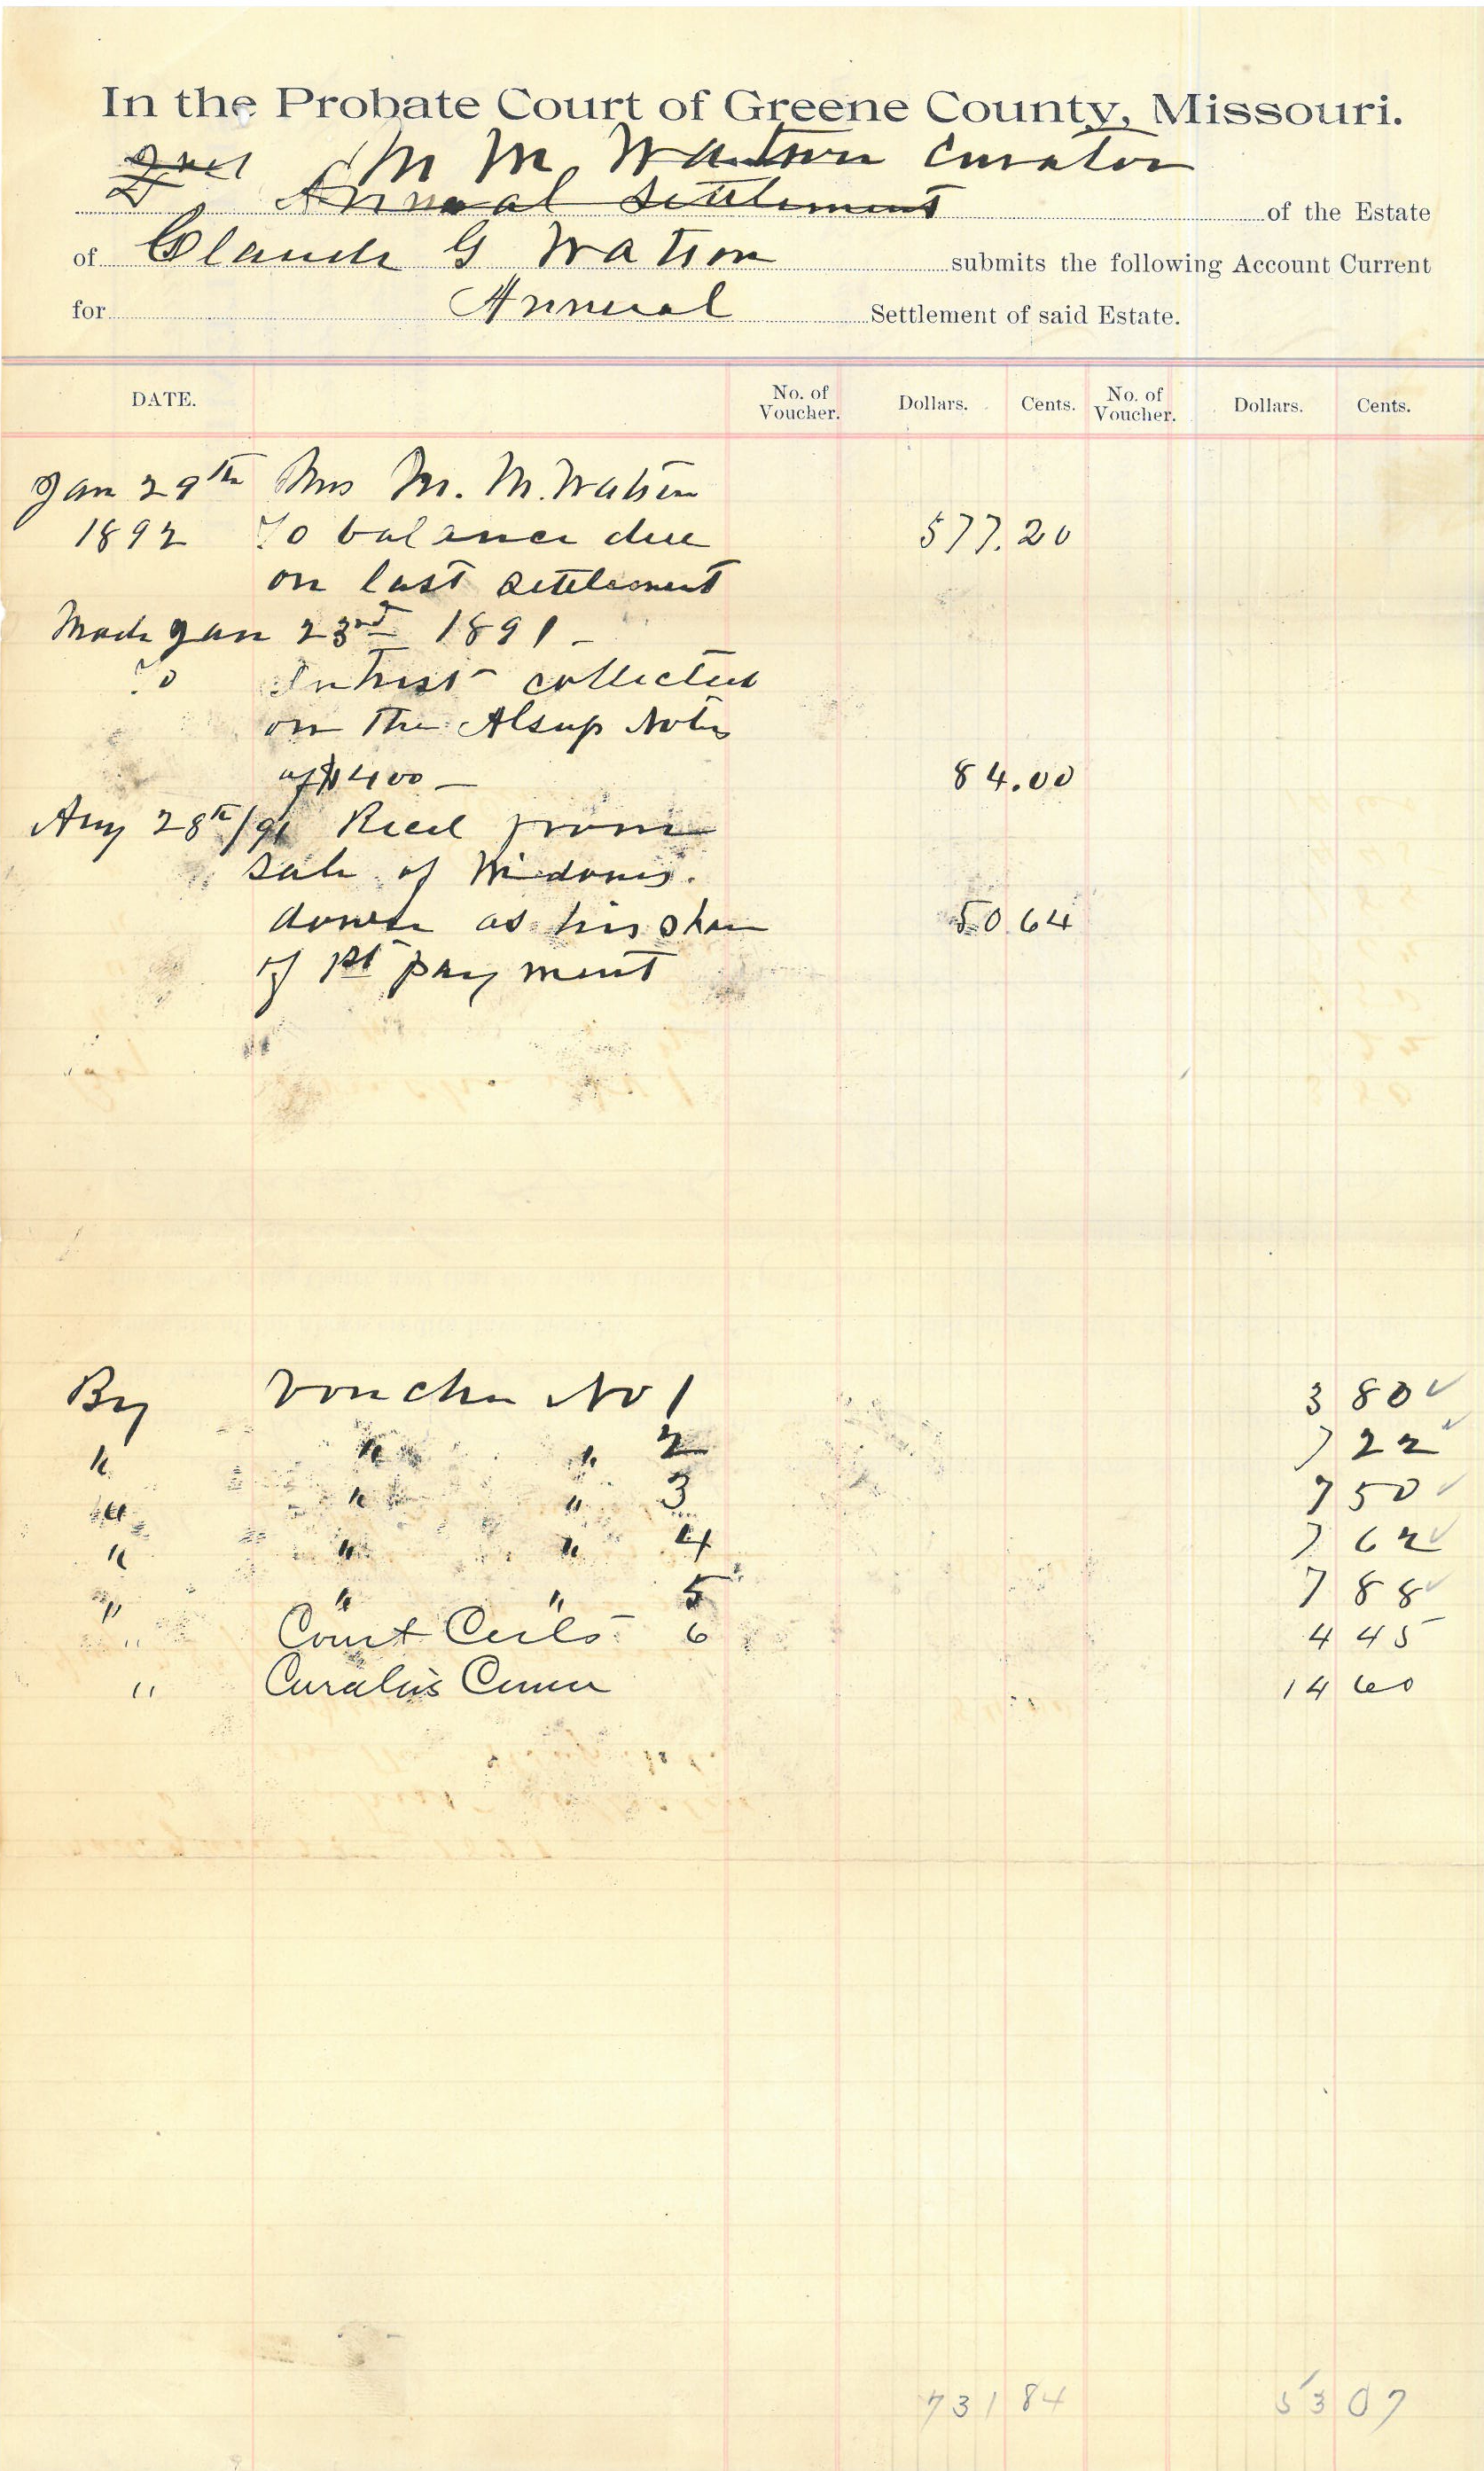 In the Probate Court of Greene County, Missouri.
2nd M M Watson Curator
Annual Settlement of the Estate
of Claude G Watson submits the following Account Current
for Annual Settlement of said Estate.
DATE. No. of Voucher. Dollars. Cents. No. of Voucher. Dollars. Cents.
Jan 29th Mrs M. M. Watson
1892 To balance due 577.20
on last settlement
Made Jan 23rd 1891 –
To Intrest collected
on the Alsup Notes
of $400 – 84.00
Aug 28th/91 Recd from
sale of Widows.
dower as his share 50 64
of 1st payment
By Voucher No 1 3 80 ✓
" " " 2 7 22 ✓
" " " 3 7 50 ✓
" " " 4 7 62 ✓
" " " 5 7 88 ✓
" Court Costs 6 4 45
" Curators Comn 14 60
731 84 53 07